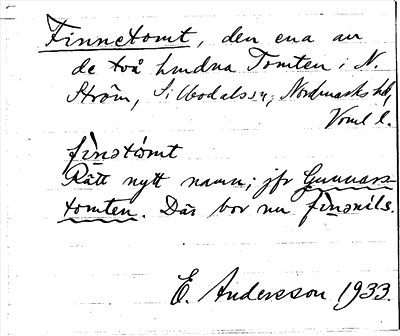 Finnetomt, den ena av
de två hudna Tomten i N.
Ström, Silbodals sn, Nordmarks hd,
Verml l.
fìnətòmt
Rätt nytt namn; jfr Gunnars-
tomten. Där bor nu fìnənìls.
E. Andersson 1933.